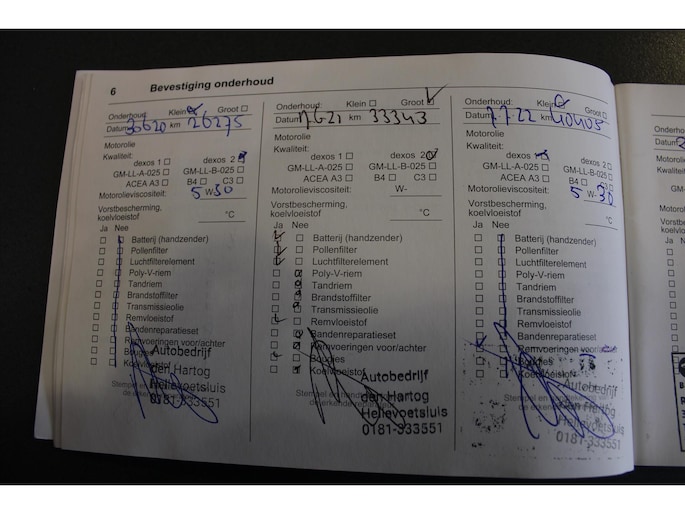 6 Bevestiging onderhoud
Onderhoud: Klein Groot
Datum 30620 km 26275
Motorolie
Kwaliteit:
dexos 1 dexos 2
GM-LL-A-025 GM-LL-B-025
ACEA A3 B4 C3
Motorolieviscositeit: 5 W- 30
Vorstbescherming,
koelvloeistof °C
Ja Nee
Batterij (handzender)
Pollenfilter
Luchtfilterelement
Poly-V-riem
Tandriem
Brandstoffilter
Transmissieolie
Remvloeistof
Bandenreparatieset
Remvoeringen voor/achter
Bougies
Koelvloeistof
Autobedrijf
den Hartog
Hellevoetsluis
0181-333551
Onderhoud: Klein Groot
Datum 17-6-21 km 33343
Motorolie
Kwaliteit:
dexos 1 dexos 2
GM-LL-A-025 GM-LL-B-025
ACEA A3 B4 C3
Motorolieviscositeit: W-
Vorstbescherming,
koelvloeistof °C
Ja Nee
Batterij (handzender)
Pollenfilter
Luchtfilterelement
Poly-V-riem
Tandriem
Brandstoffilter
Transmissieolie
Remvloeistof
Bandenreparatieset
Remvoeringen voor/achter
Bougies
Koelvloeistof
Autobedrijf
den Hartog
Hellevoetsluis
0181-333551
Onderhoud: Klein Groot
Datum 7-7-22 km 40405
Motorolie
Kwaliteit:
dexos 1 dexos 2
GM-LL-A-025 GM-LL-B-025
ACEA A3 B4 C3
Motorolieviscositeit: 5 W- 30
Vorstbescherming,
koelvloeistof °C
Ja Nee
Batterij (handzender)
Pollenfilter
Luchtfilterelement
Poly-V-riem
Tandriem
Brandstoffilter
Transmissieolie
Remvloeistof
Bandenreparatieset
Remvoeringen voor/achter
Bougies
Koelvloeistof
Autobedrijf
den Hartog
Hellevoetsluis
0181-333551